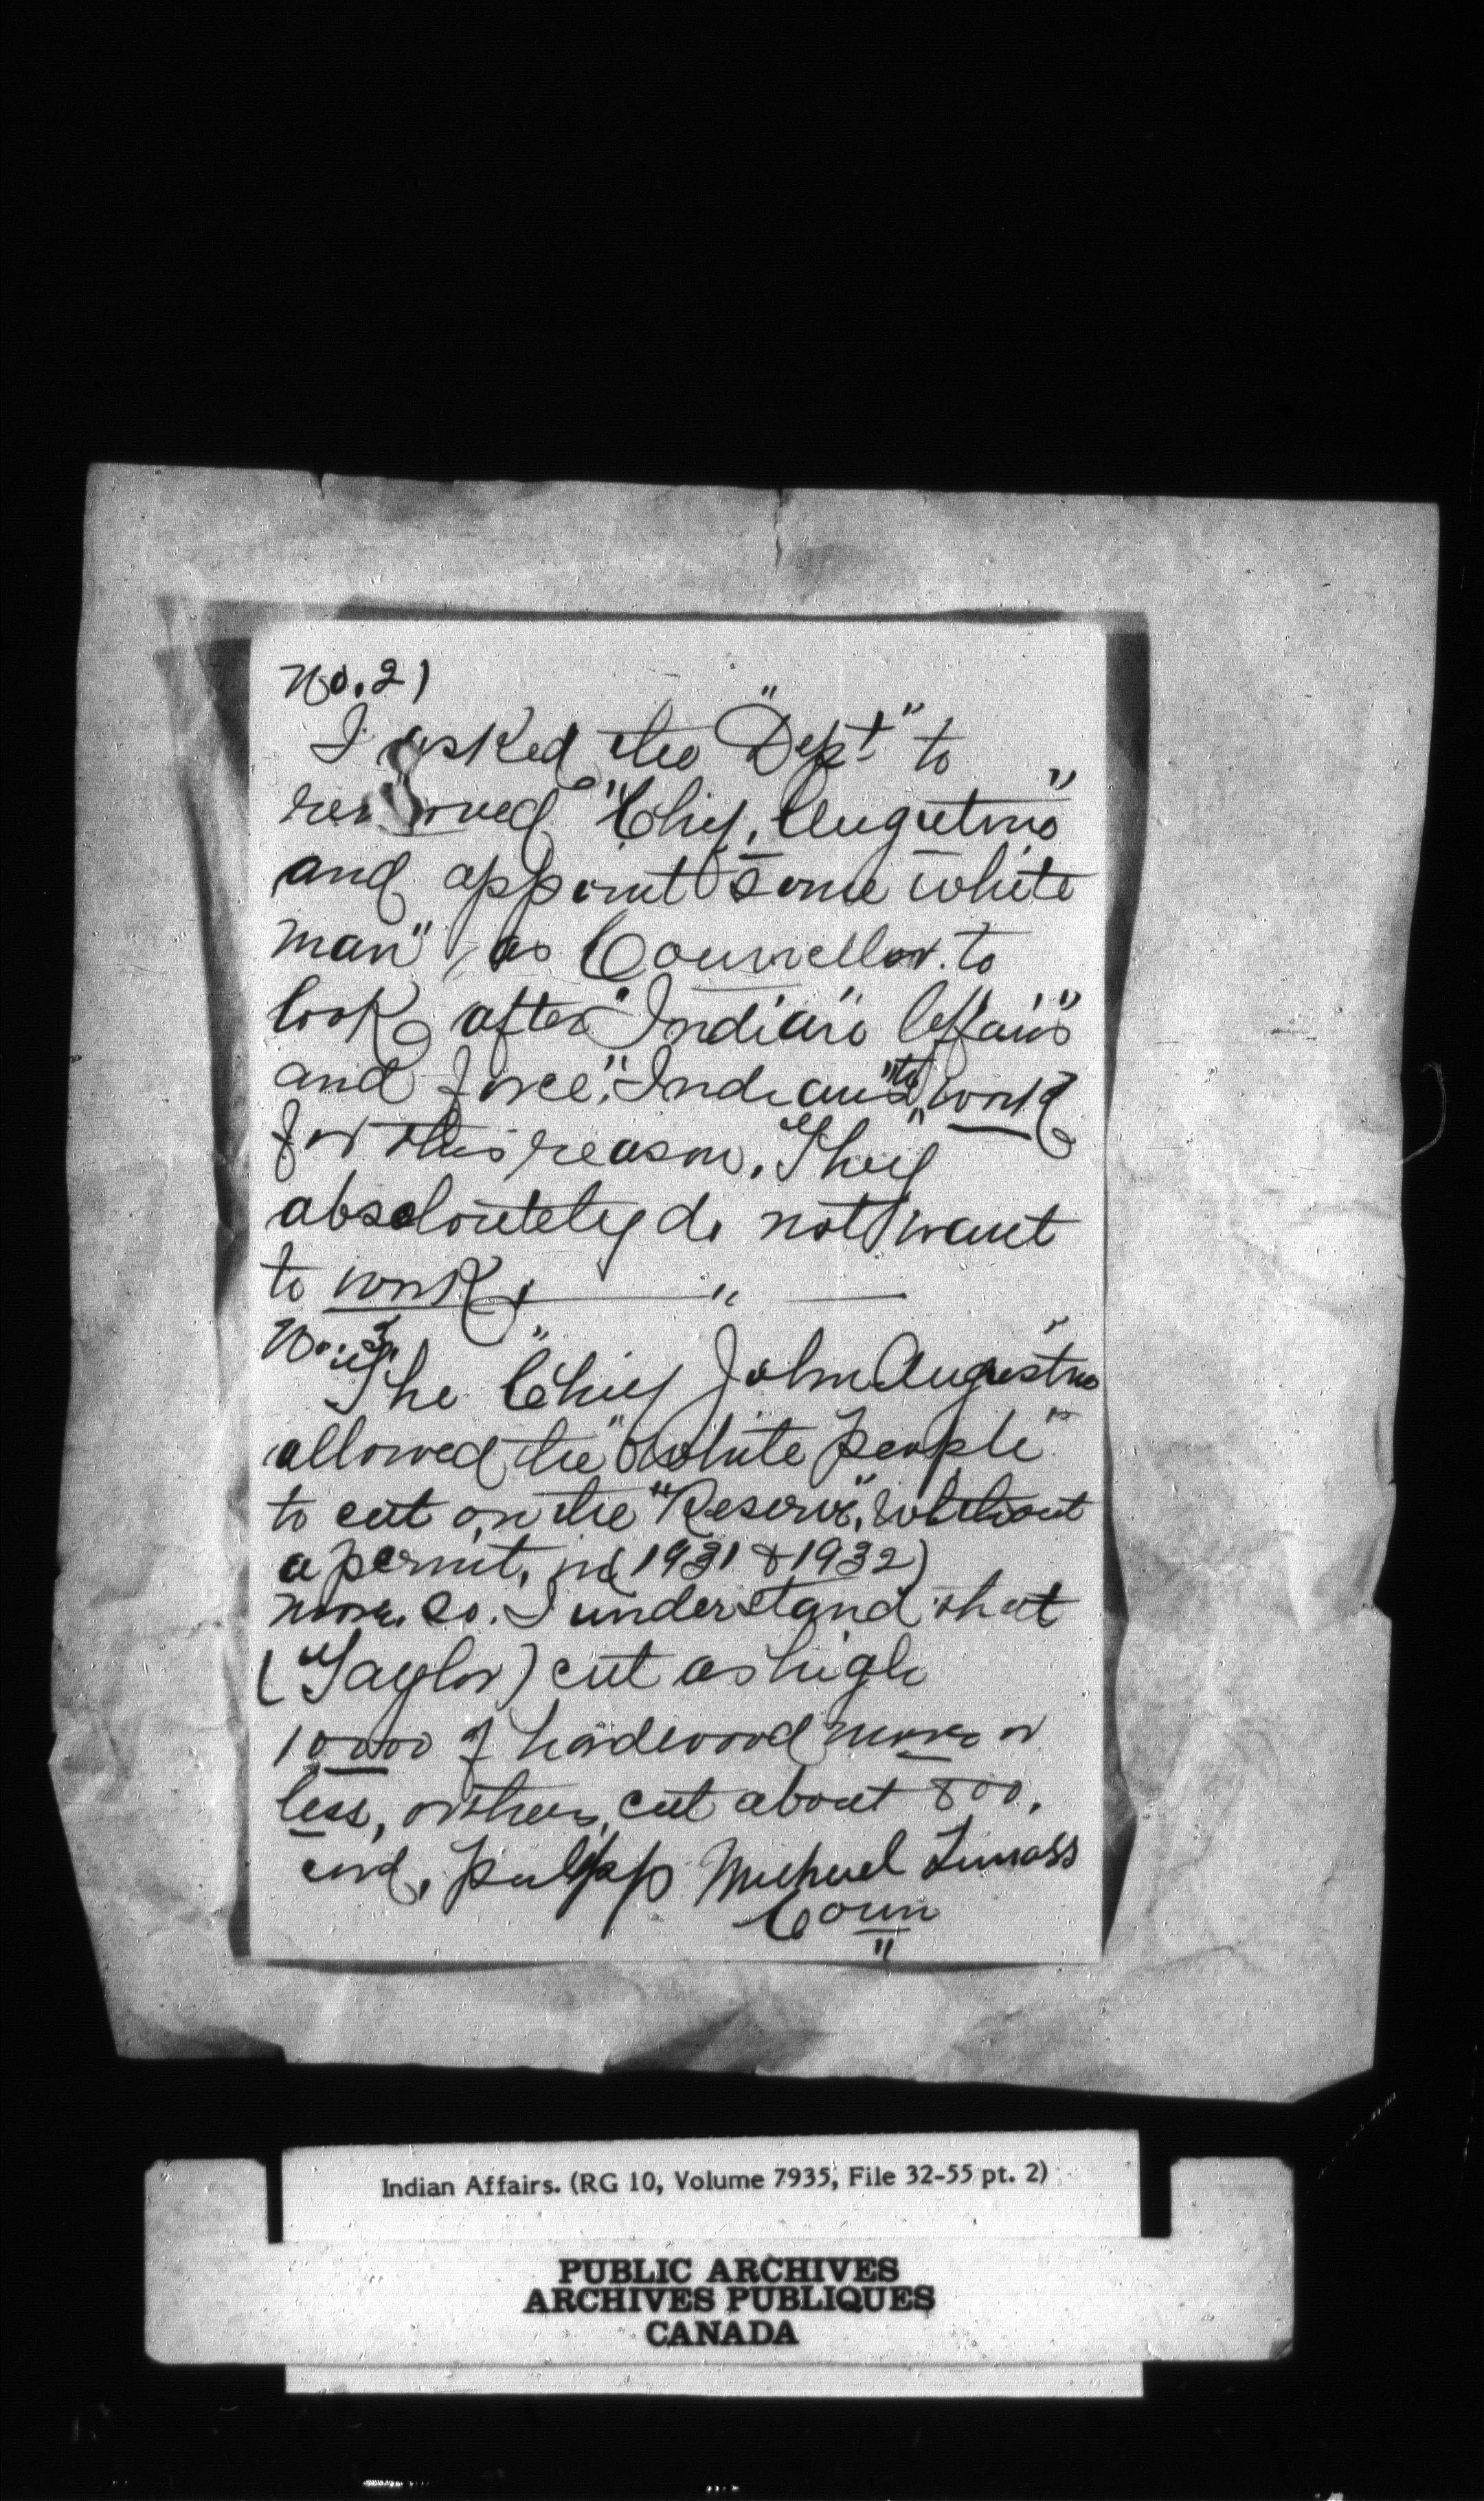 No. 2)
I asked the "Dept" to
removed "Chief, Augustine"
and appoint "some white
man", as Councellor. to
look after "Indian's Affairs"
and force, "Indians" "to work
for this reason. "They"
absoloutely do not want
to work. "
No. 3.
"The "Chief John Augustine"
allowed the "White people"
to cut on the "Reserve", without
a permit. in (1931 & 1932)
more. so. I understand that
(Taylor) cut as high
10000 of hardwood more or
less, others, cut about 800,
cord, pulpp Michael
Coun
"
Indian Affairs. (RG 10, Volume 7935, File 32-55 pt. 2)
PUBLIC ARCHIVES
ARCHIVES PUBLIQUES
CANADA